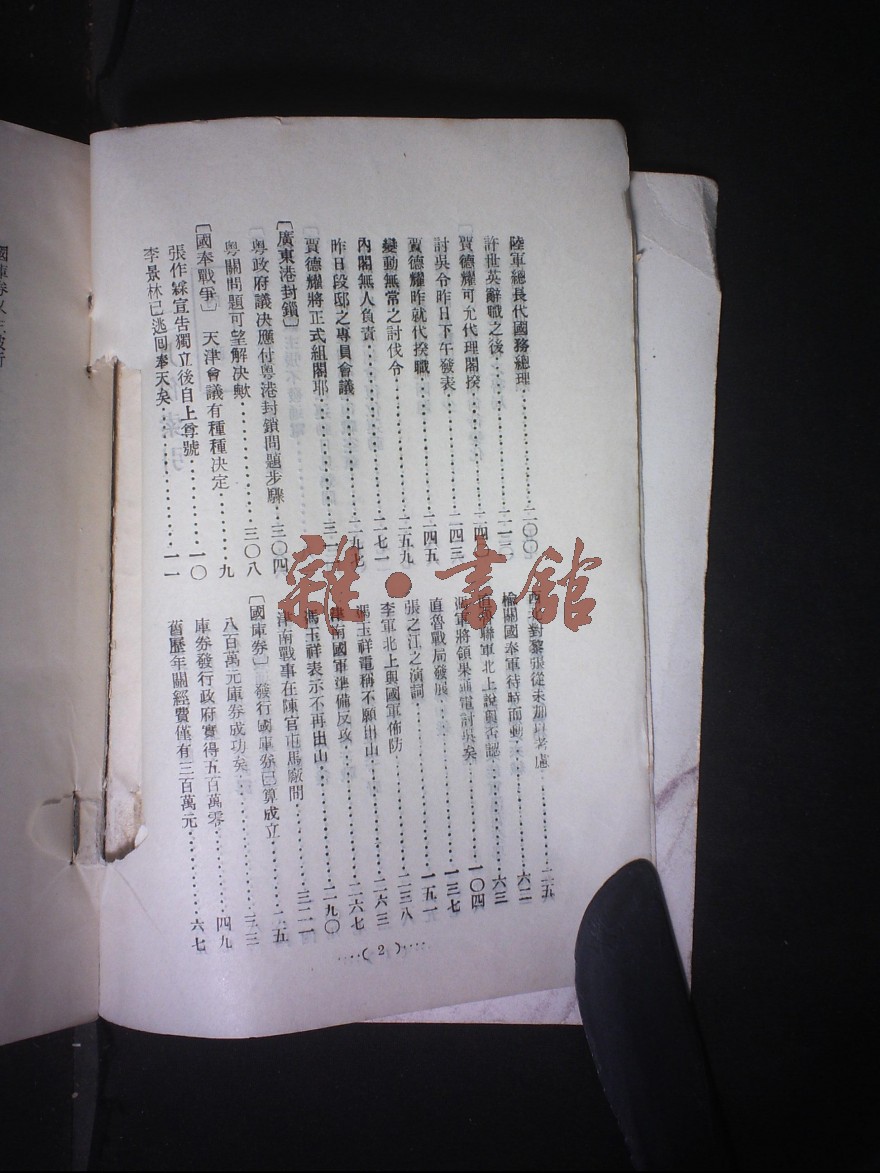 陸軍總長代國務總理‥‥‥‥二〇〇
許世英辭職之後‥‥‥‥二一三
賈德耀可允代理閣揆‥‥‥‥二四
討吳令昨日下午發表‥‥‥‥二四三
賈德耀昨就代揆職‥‥‥‥二四五
變動無常之討伐令‥‥‥‥二五九
內閣無人負責‥‥‥‥二七一
昨日段邸之專員會議‥‥‥‥二九七
賈德耀將正式組閣耶‥‥‥‥三一
〔廣東港封鎖〕
粵政府議决應付粵港封鎖問題步驟‥‥‥‥三〇四
粵關問題可望解决歟‥‥‥‥三〇八
〔國奉戰爭〕 天津會議有種種决定‥‥‥‥九
張作霖宣告獨立後自上尊號‥‥‥‥一〇
李景林已逃回奉天矣‥‥‥‥一一
西北對黎張從未加以考慮‥‥‥‥二五
榆關國奉軍待時而動‥‥‥‥六二
聯軍北上說與否認‥‥‥‥六三
馮軍將領果通電討吳矣‥‥‥‥一〇四
直魯戰局發展‥‥‥‥一三七
張之江之演詞‥‥‥‥一五一
李軍北上與國軍佈防‥‥‥‥二三八
馮玉祥電稱不願出山‥‥‥‥二六三
津南國軍準備反攻‥‥‥‥二六七
馮玉祥表示不再出山‥‥‥‥二九〇
津南戰事在陳官屯馬廠間‥‥‥‥三二一
〔國庫券〕 發行國庫券已算成立‥‥‥‥二五
八百萬元庫券成功矣‥‥‥‥三三
庫券發行政府實得五百萬零‥‥‥‥四九
舊歷年關經費僅有三百萬元‥‥‥‥六七
‥‥( 2 )‥‥
雜·書館